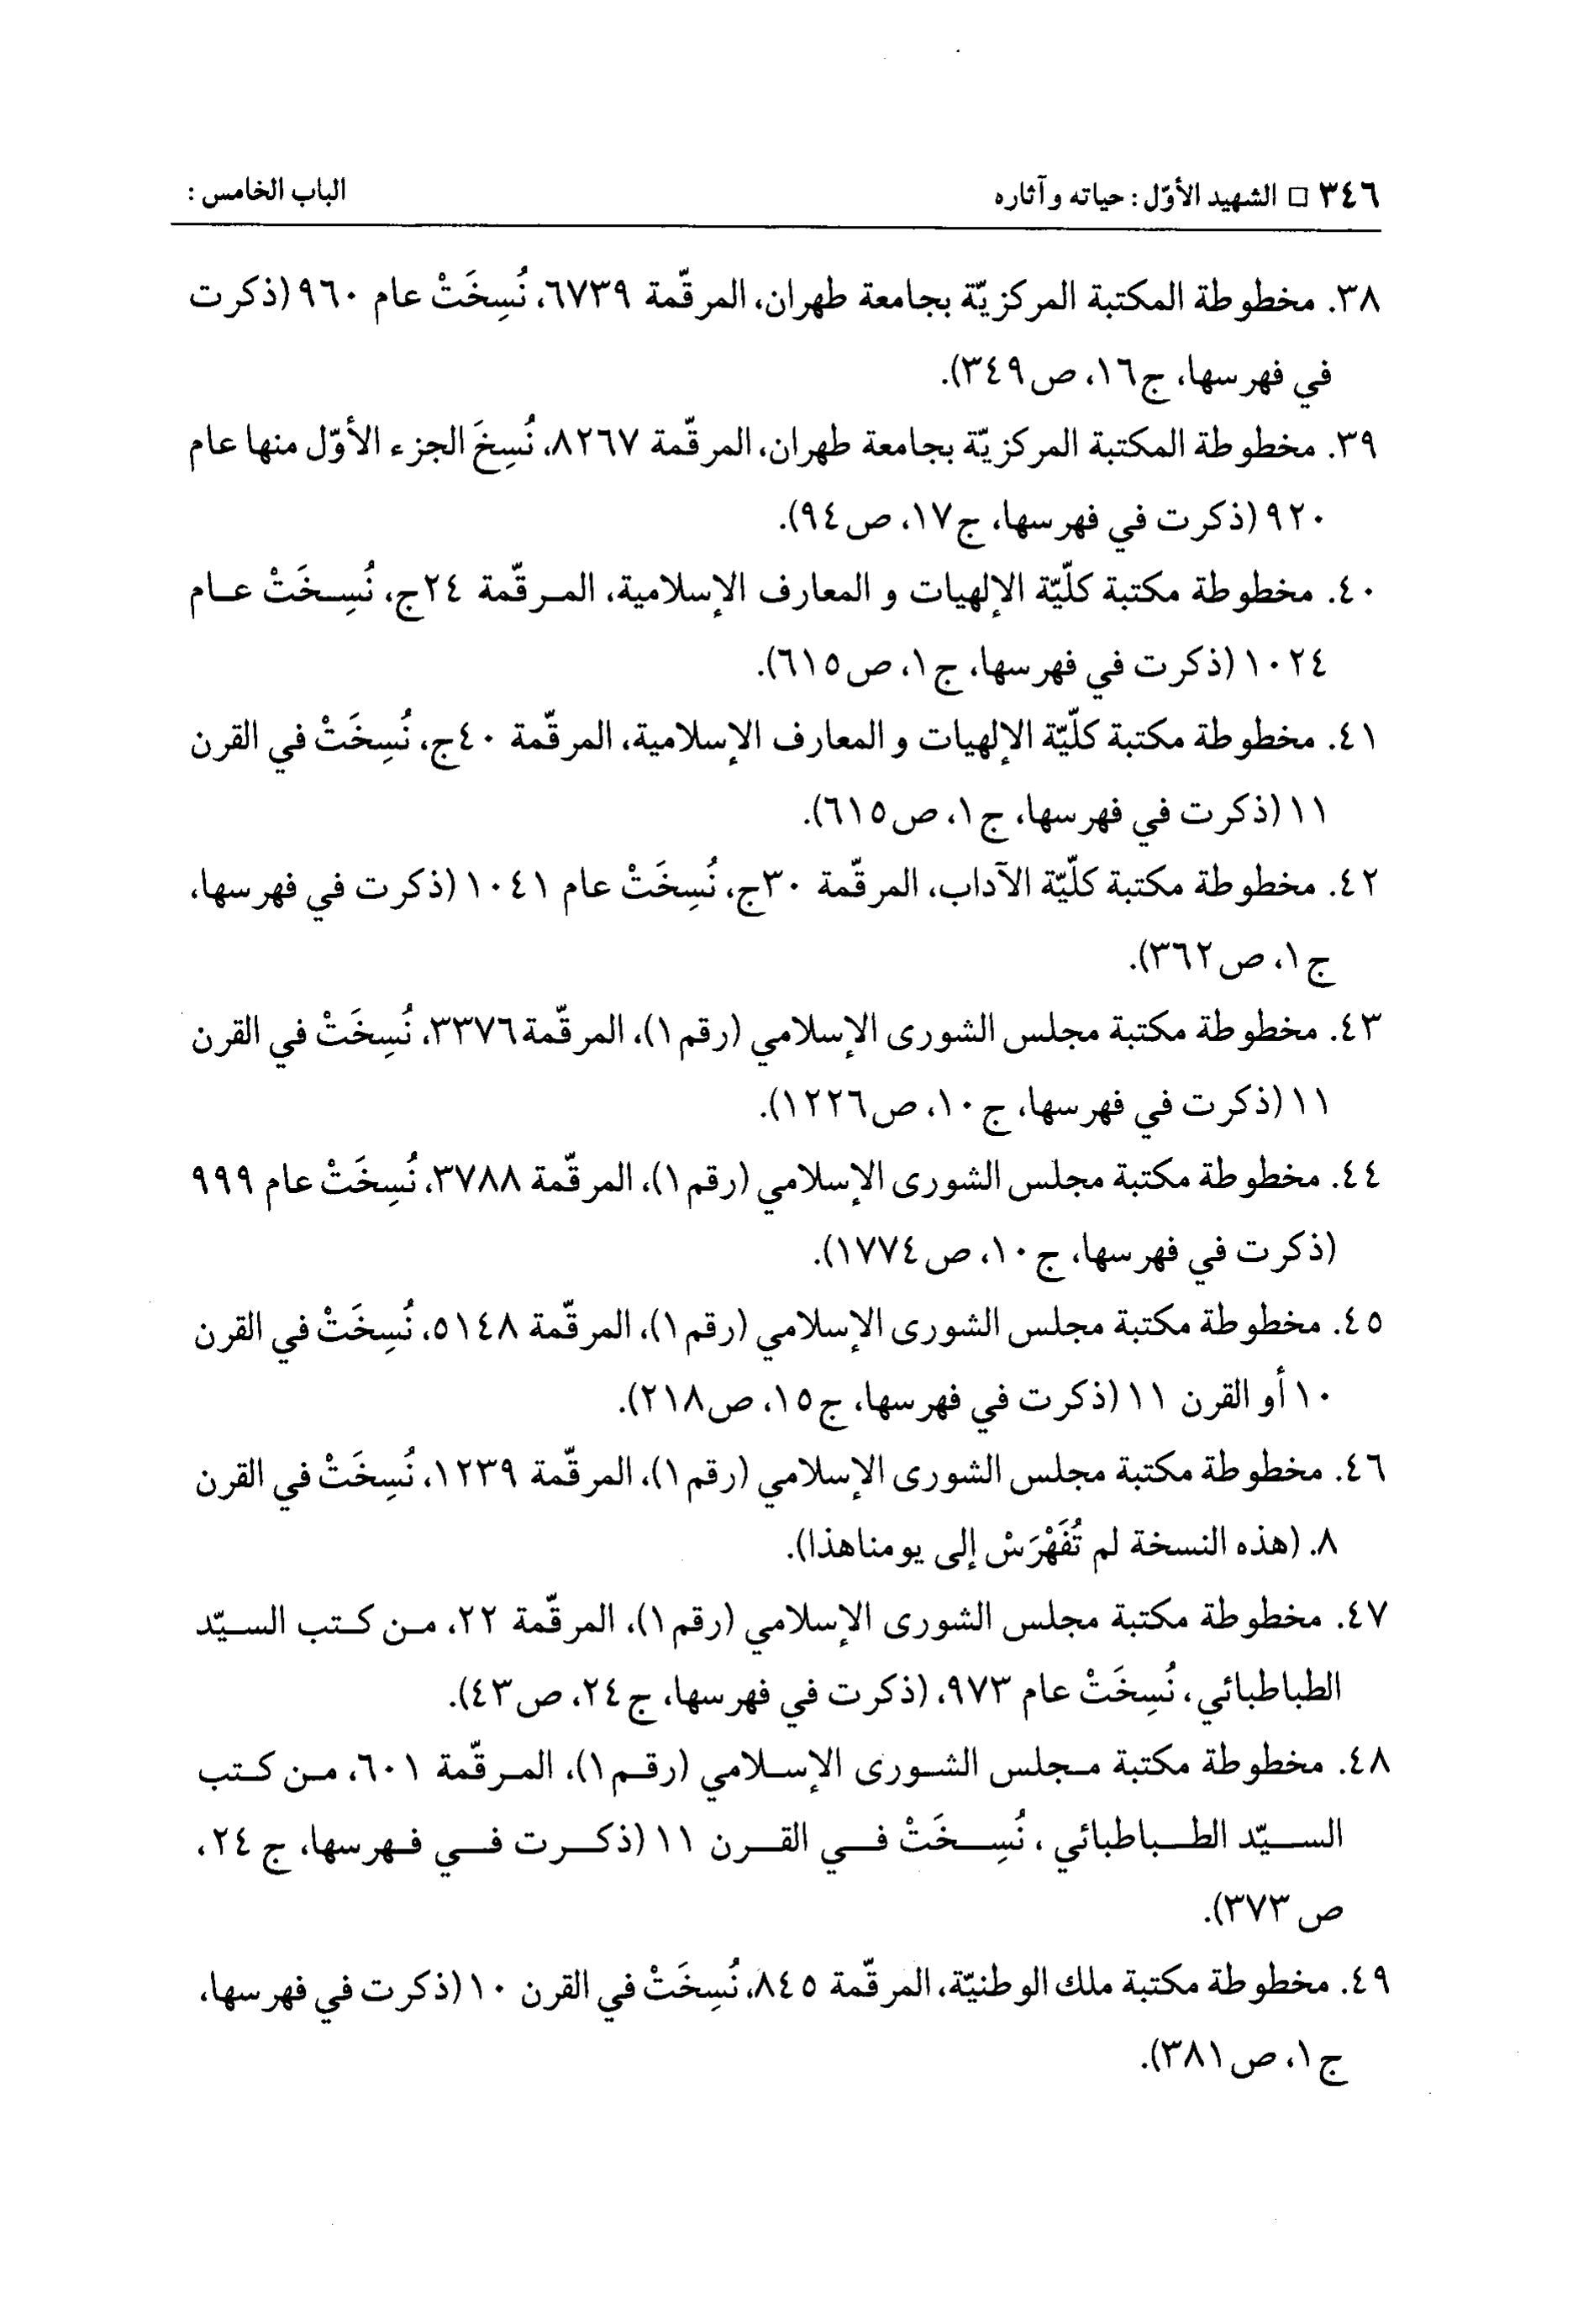 ٣٤٦ □ الشهيد الأوّل : حياته و آثاره
الباب الخامس :
٣٨. مخطوطة المكتبة المركزيّة بجامعة طهران، المرقّمة ٦٧٣٩، نُسِخَتْ عام ٩٦٠ (ذكرت
في فهرسها، ج١٦، ص٣٤٩).
٣٩. مخطوطة المكتبة المركزيّة بجامعة طهران، المرقّمة ٨٢٦٧، نُسِخَ الجزء الأوّل منها عام
٩٢٠ (ذكرت في فهرسها، ج١٧، ص٩٤).
٤٠. مخطوطة مكتبة كلّيّة الإلهيات و المعارف الإسلامية، المرقّمة ٢٤ج، نُسِخَتْ عام
١٠٢٤ (ذكرت في فهرسها، ج١، ص٦١٥).
٤١. مخطوطة مكتبة كلّيّة الإلهيات و المعارف الإسلامية، المرقّمة ٤٠ج، نُسِخَتْ في القرن
١١ (ذكرت في فهرسها، ج١، ص٦١٥).
٤٢. مخطوطة مكتبة كلّيّة الآداب، المرقّمة ٣٠ج، نُسِخَتْ عام ١٠٤١ (ذكرت في فهرسها،
ج١، ص٣٦٢).
٤٣. مخطوطة مكتبة مجلس الشورى الإسلامي (رقم١)، المرقّمة ٣٣٧٦، نُسِخَتْ في القرن
١١ (ذكرت في فهرسها، ج١٠، ص١٢٢٦).
٤٤. مخطوطة مكتبة مجلس الشورى الإسلامي (رقم١)، المرقّمة ٣٧٨٨، نُسِخَتْ عام ٩٩٩
(ذكرت في فهرسها، ج١٠، ص١٧٧٤).
٤٥. مخطوطة مكتبة مجلس الشورى الإسلامي (رقم١)، المرقّمة ٥١٤٨، نُسِخَتْ في القرن
١٠ أو القرن ١١ (ذكرت في فهرسها، ج١٥، ص٢١٨).
٤٦. مخطوطة مكتبة مجلس الشورى الإسلامي (رقم١)، المرقّمة ١٢٣٩، نُسِخَتْ في القرن
٨. (هذه النسخة لم تُفَهْرَسْ إلى يومنا هذا).
٤٧. مخطوطة مكتبة مجلس الشورى الإسلامي (رقم١)، المرقّمة ٢٢، من كتب السيّد
الطباطبائي، نُسِخَتْ عام ٩٧٣، (ذكرت في فهرسها، ج٢٤، ص٤٣).
٤٨. مخطوطة مكتبة مجلس الشورى الإسلامي (رقم١)، المرقّمة ٦٠١، من كتب
السيّد الطباطبائي ، نُسِخَتْ في القرن ١١ (ذكرت في فهرسها، ج ٢٤،
ص ٣٧٣).
٤٩. مخطوطة مكتبة ملك الوطنيّة، المرقّمة ٨٤٥، نُسِخَتْ في القرن ١٠ (ذكرت في فهرسها،
ج١، ص٣٨١).